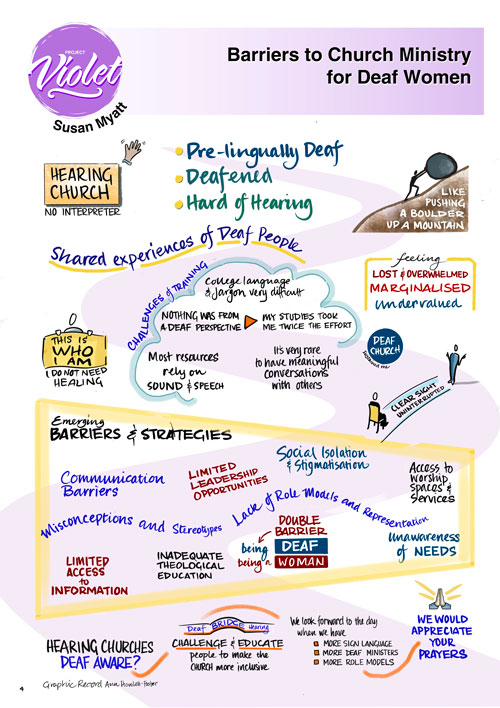 PROJECT
Violet
Susan Myatt
Barriers to Church Ministry
for Deaf Women
HEARING
CHURCH
NO INTERPRETER
Pre-lingually Deaf
Deafened
Hard of Hearing
LIKE
PUSHING
A BOULDER
UP A MOUNTAIN
Shared experiences of Deaf People
CHALLENGES of TRAINING
College language
& Jargon very difficult
NOTHING WAS FROM
A DEAF PERSPECTIVE
MY STUDIES TOOK
ME TWICE THE EFFORT
Most resources
rely on
SOUND & SPEECH
It's very rare
to have meaningful
conversations
with others
feeling
LOST & OVERWHELMED
MARGINALISED
undervalued
THIS IS
WHO
I AM
I DO NOT NEED
HEALING
DEAF
CHURCH
welcomed me
CLEAR SIGHT
UNINTERRUPTED
Emerging
BARRIERS & STRATEGIES
Communication
Barriers
LIMITED
LEADERSHIP
OPPORTUNITIES
Social Isolation
& Stigmatisation
Access to
worship
spaces &
services
Misconceptions and Stereotypes
Lack of Role Models and Representation
LIMITED
ACCESS
to
INFORMATION
INADEQUATE
THEOLOGICAL
EDUCATION
DOUBLE
BARRIER
being DEAF
being a WOMAN
Unawareness
of NEEDS
HEARING CHURCHES
DEAF AWARE?
Deaf BRIDGE Hearing
CHALLENGE & EDUCATE
people to make the
CHURCH more inclusive
We look forward to the day
when we have
MORE SIGN LANGUAGE
MORE DEAF MINISTERS
MORE ROLE MODELS
WE WOULD
APPRECIATE
YOUR
PRAYERS
4
Graphic Record Ann